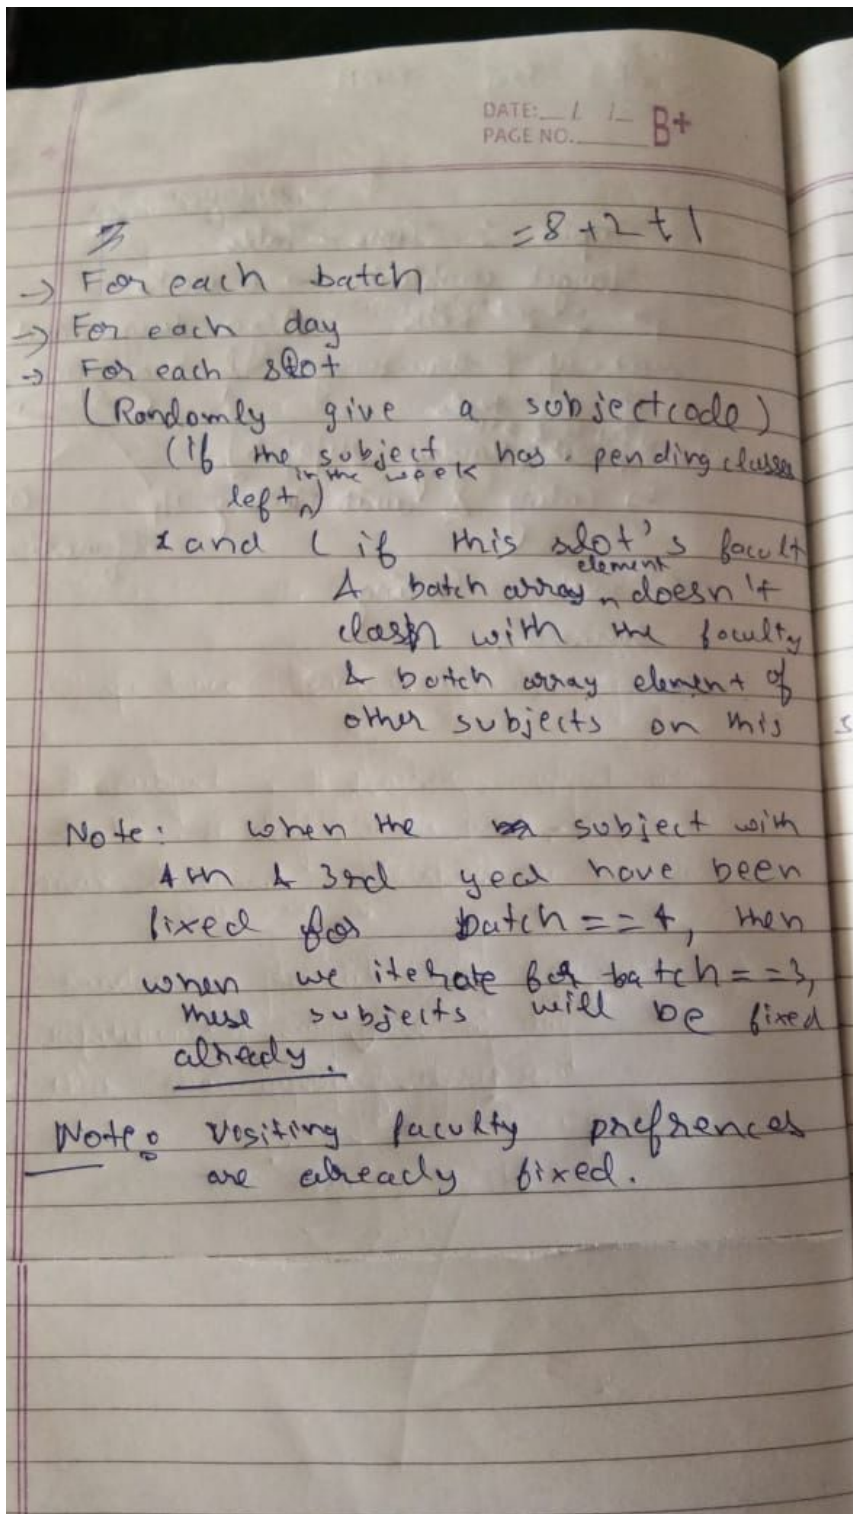 DATE: / /
PAGE NO. B+
= 8 + 2 + 1
→ For each batch
→ For each day
→ For each slot
(Randomly give a subjectcode)
(if the subject has pending classes
in the week
left)
and ( if this slot's facult
element
& batch array doesn't
clash with the faculty
& batch array element of
other subjects on this s
Note: when the subject with
4th & 3rd year have been
fixed for batch == 4, then
when we iterate for batch == 3,
these subjects will be fixed
already.
Note: Visiting faculty prefrences
are already fixed.